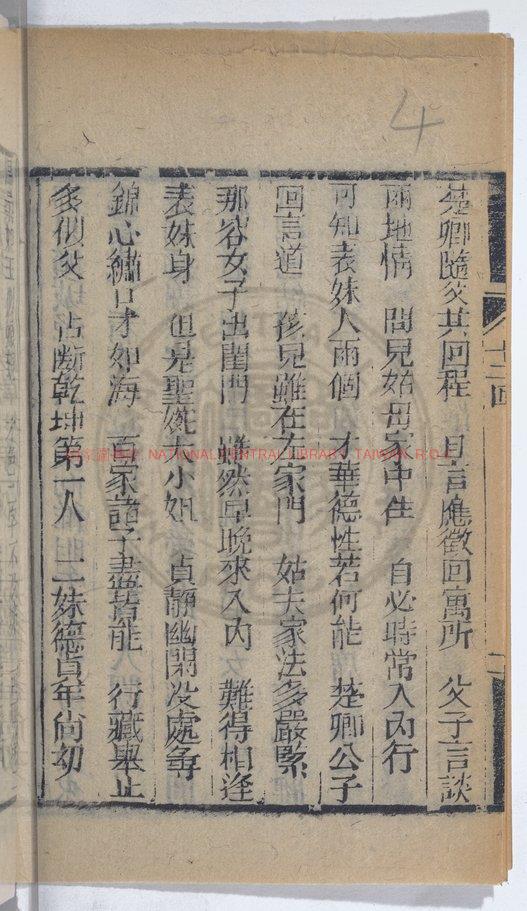 4
十二回
二
楚卿隨父共回程　且言應徵回寓所　父子言談
兩地情　問兒姑母家中住　自必時常入內行
可知表妹人兩個　才華德性若何能　楚卿公子
回言道　孩兒雖在左家門　姑夫家法多嚴緊
那容女子出閨門　雖然早晚來入內　難得相逢
表妹身　但是聖婉大小姐　貞靜幽閑没處尋
錦心繡口才如海　百家諸子盡皆能　行藏舉止
多似父　占斷乾坤第一人　二妹德貞年尚幼
NATIONAL CENTRAL LIBRARY, TAIWAN, R.O.C.